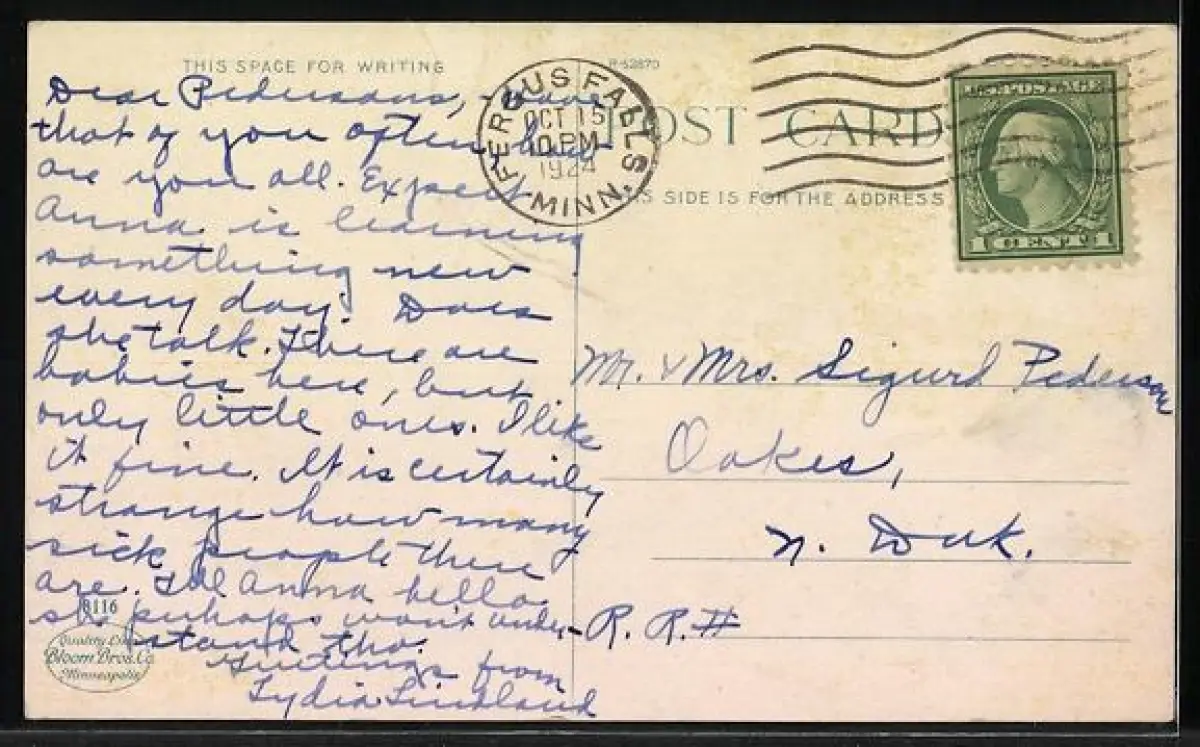 THIS SPACE FOR WRITING
R-52870
POST CARD
THIS SIDE IS FOR THE ADDRESS
FERGUS FALLS
OCT 15
10 PM
1924
MINN.
U.S. POSTAGE
1 CENT 1
Dear Pedersons,
that of you often. How
are you all. Expect
Anna is learning
something new
every day. Does
she talk. There are
babies here, but
only little ones. I like
it fine. It is certainly
strange how many
sick people there
are. Tell Anna hello.
she perhaps won't under-
stand tho.
Greetings from
Lydia
Mr. & Mrs. Sigurd Pederson
Oakes,
N. Dak.
R. R. #
8116
Quality Line
Bloom Bros. Co.
Minneapolis